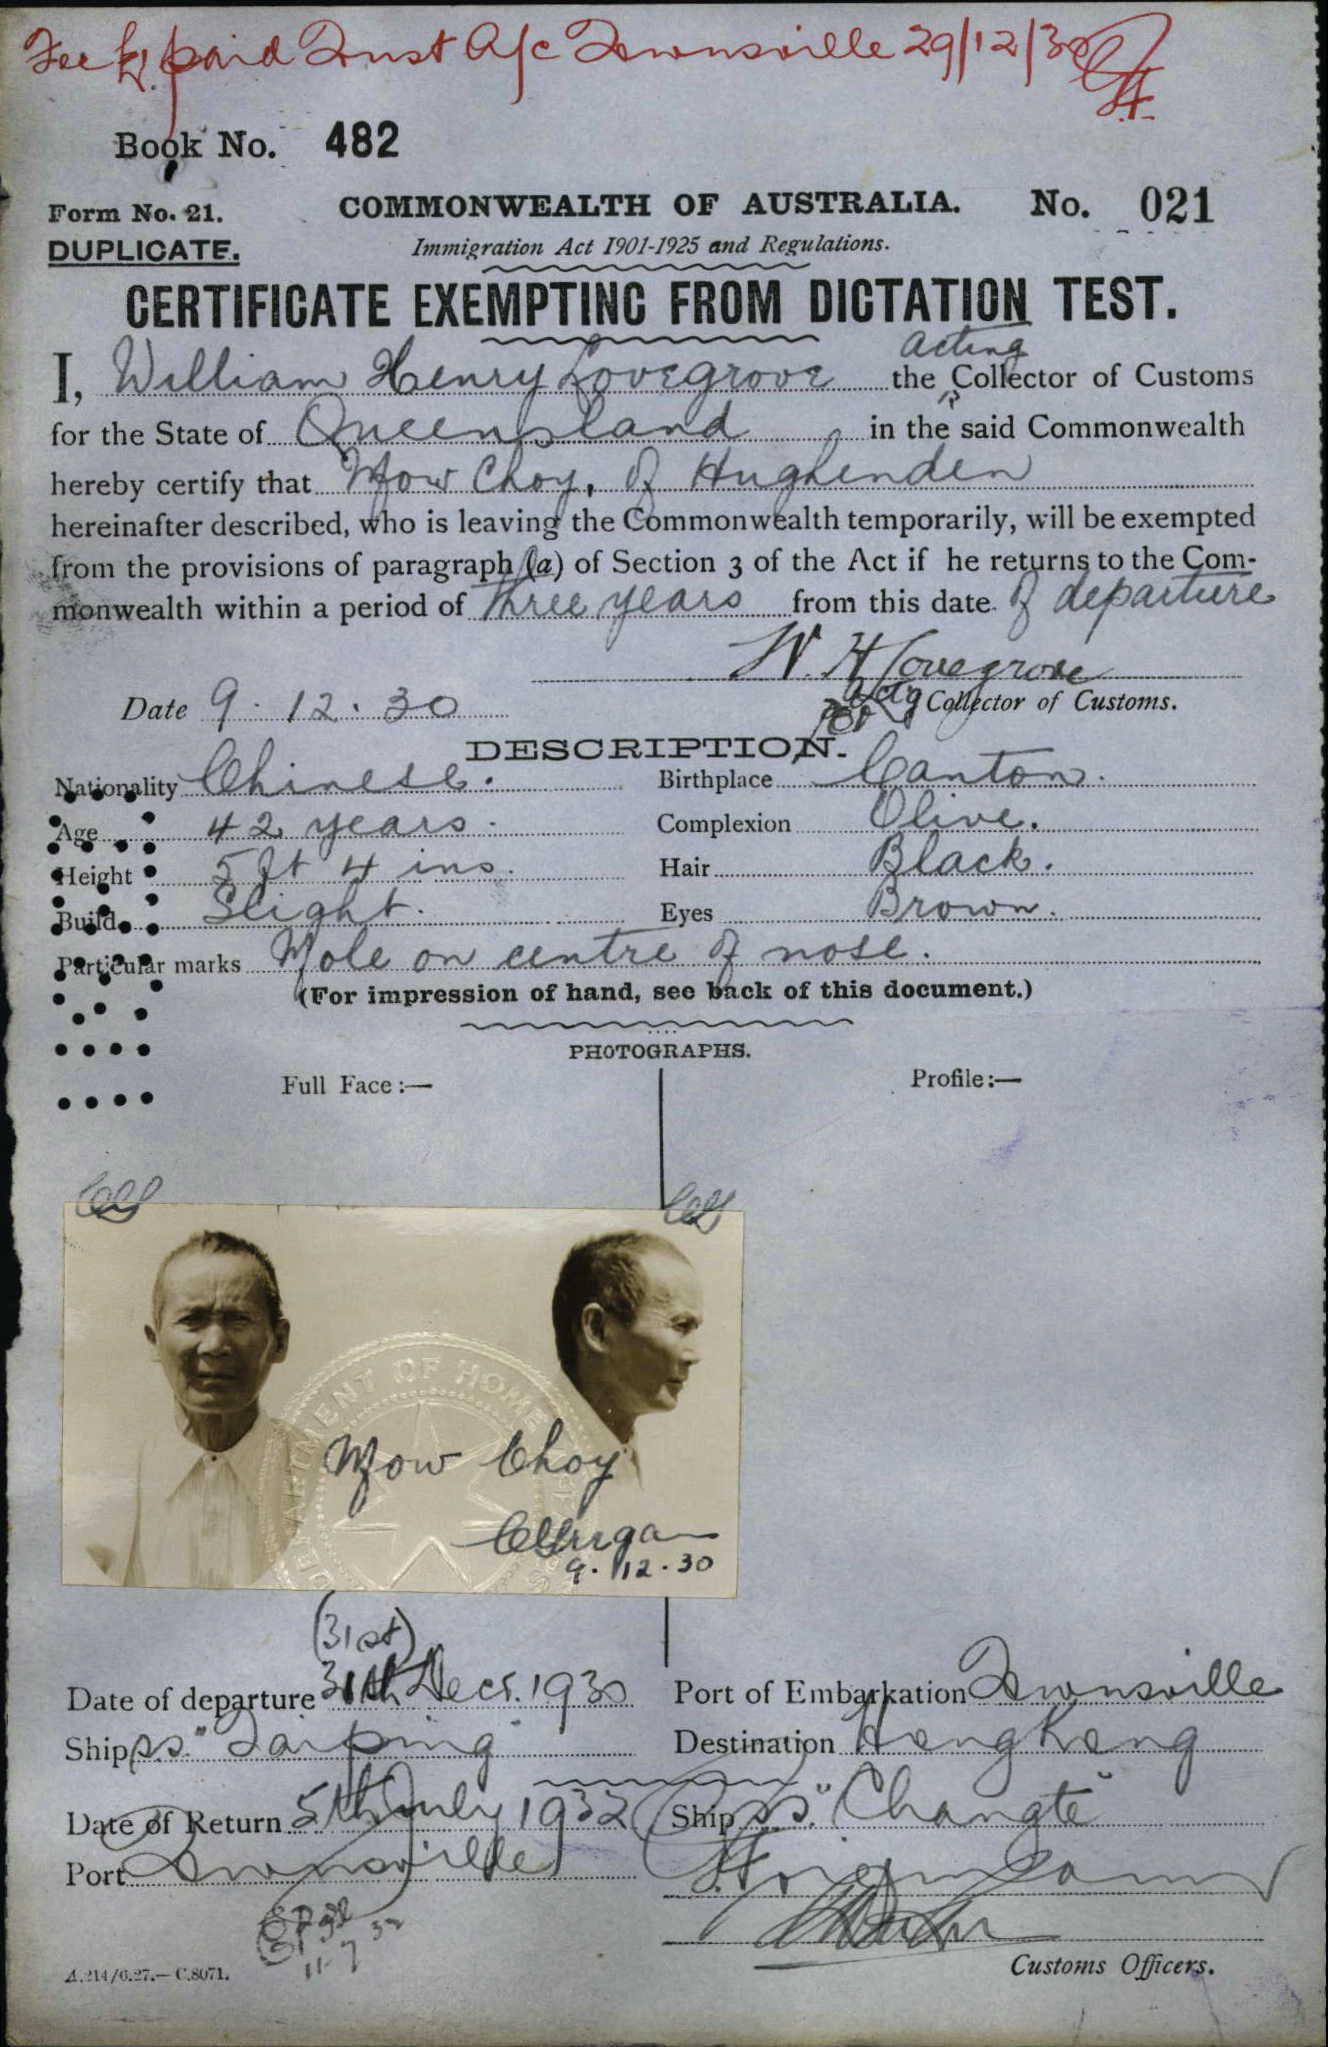 Fee £1 paid Trust A/c Townsville 29/12/30
Book No. 482
Form No. 21. COMMONWEALTH OF AUSTRALIA. No. 021
DUPLICATE. Immigration Act 1901-1925 and Regulations.
CERTIFICATE EXEMPTING FROM DICTATION TEST.
acting
I, William Henry Lovegrove the Collector of Customs
for the State of Queensland in the said Commonwealth
hereby certify that Mow Choy, of Hughenden
hereinafter described, who is leaving the Commonwealth temporarily, will be exempted
from the provisions of paragraph (a) of Section 3 of the Act if he returns to the Com-
monwealth within a period of three years from this date of departure
W. H Lovegrove
Date 9.12.30 actg Collector of Customs.
DESCRIPTION.
Nationality Chinese. Birthplace Canton.
Age 42 years. Complexion Olive.
Height 5 ft 4 ins. Hair Black.
Build Slight. Eyes Brown.
Particular marks Mole on centre of nose.
(For impression of hand, see back of this document.)
PHOTOGRAPHS.
Full Face:— Profile:—
DEPARTMENT OF HOME
Mow Choy
9.12.30
(31st)
Date of departure 31th Decr. 1930 Port of Embarkation Townsville
Ship ss. "Taiping" Destination HongKong
Date of Return 5th July 1932 Ship ss. "Changte"
Port Townsville
11-7 32
A.214/6.27.—C.8071. Customs Officers.